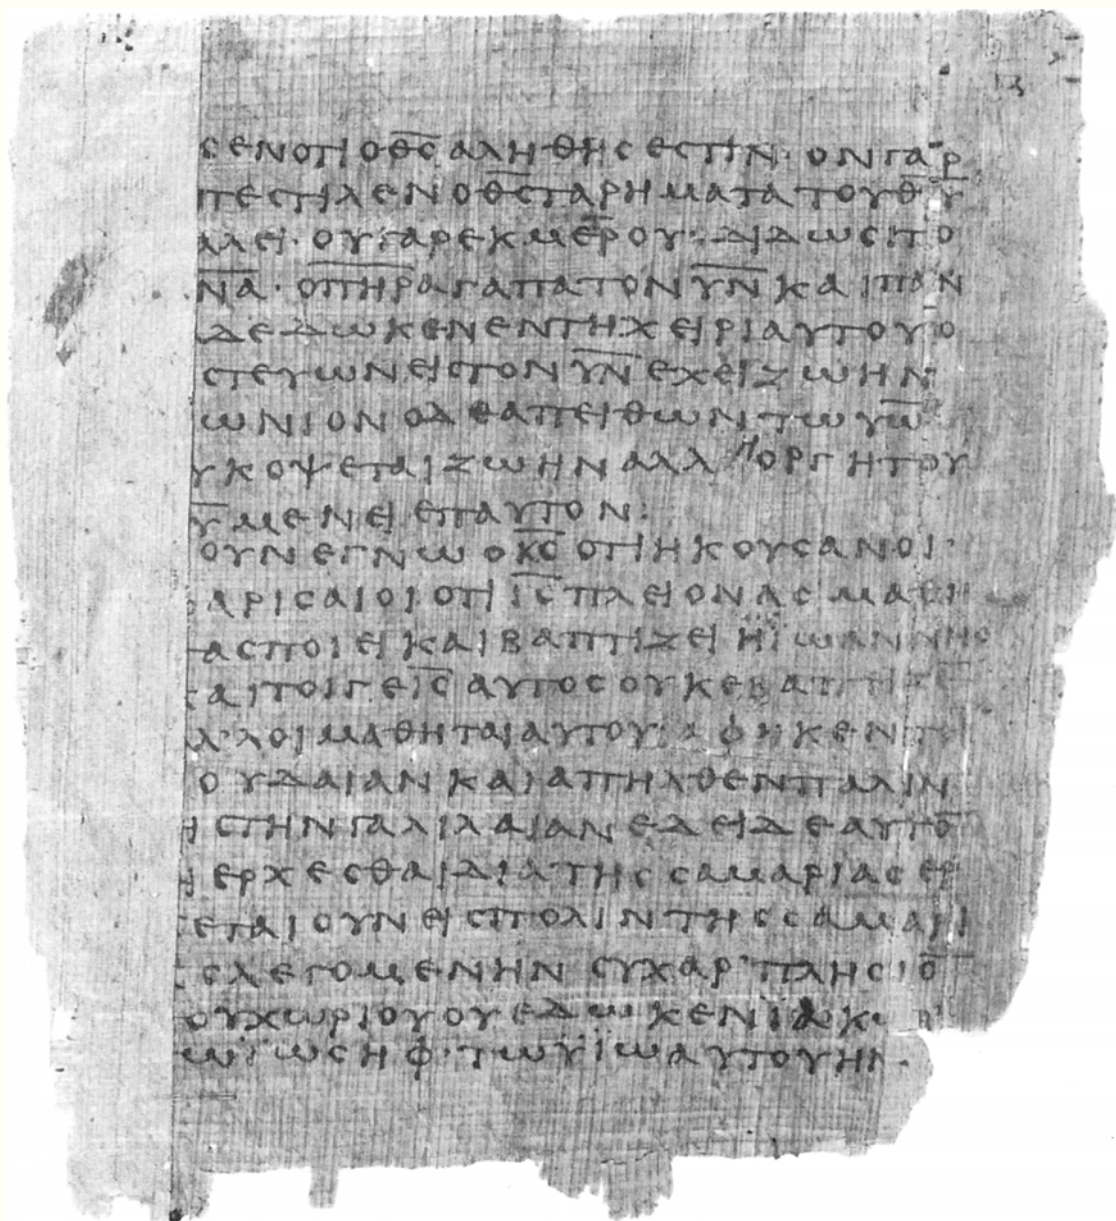 ϹΕΝΟΤΙΟΘ̅Ϲ̅ΑΛΗΘΗϹΕϹΤΙΝ· ΟΝΓΑΡ
ΠΕϹΤΙΛΕΝΟΘ̅Ϲ̅ΤΑΡΗΜΑΤΑΤΟΥΘ̅Υ̅
ΑΛΕΙ· ΟΥΓΑΡΕΚΜΕΡΟΥ· ΔΙΔΩϹΙΤΟ
Ν̅Α̅· ΟΠ̅Η̅Ρ̅ΑΓΑΠΑΤΟΝΥ̅Ν̅ΚΑΙΠΑΝ
ΑΔΕΔΩΚΕΝΕΝΤΗΧΕΙΡΙΑΥΤΟΥΟ
ϹΤΕΥΩΝΕΙϹΤΟΝΥ̅Ν̅ΕΧΕΙΖΩΗΝ
ΩΝΙΟΝΟΔΕΑΠΕΙΘΩΝΤΩΥ̅Ω̅
ΥΚΟΨΕΤΑΙΖΩΗΝΑΛΛΗΟΡΓΗΤΟΥ
Υ̅ΜΕΝΕΙΕΠΑΥΤΟΝ:
ΟΥΝΕΓΝΩΟΚ̅Ϲ̅ΟΤΙΗΚΟΥϹΑΝΟΙ·
ΑΡΙϹΑΙΟΙΟΤΙΙ̅Ϲ̅ΠΛΕΙΟΝΑϹΜΑΘΗ
ΤΑϹΠΟΙΕΙΚΑΙΒΑΠΤΙΖΕΙΗΪΩΑΝΝΗϹ
ΚΑΙΤΟΙΓΕΙ̅Ϲ̅ΑΥΤΟϹΟΥΚΕΒΑΠΤΙΖΕ̅
ΑΛ’ΛΟΙΜΑΘΗΤΑΙΑΥΤΟΥ· ΑΦΗΚΕΝΤΗ
ΟΥΔΑΙΑΝΚΑΙΑΠΗΛΘΕΝΠΑΛΙΝ
ΙϹΤΗΝΓΑΛΙΛΑΙΑΝΕΔΕΙΔΕΑΥΤΟ̅
ΙΕΡΧΕϹΘΑΙΔΙΑΤΗϹϹΑΜΑΡΙΑϹΕΡ
ΕΤΑΙΟΥΝΕΙϹΠΟΛΙΝΤΗϹϹΑΜΑΡΙ
ϹΛΕΓΟΜΕΝΗΝϹΥΧΑΡ’ΠΛΗϹΙΟ̅
ΟΥΧΩΡΙΟΥΟΥΕΔΩΚΕΝΪΑΚΩΒ’
ΩΪΩϹΗΦ· ΤΩΥΪΩΑΥΤΟΥΗΝ·